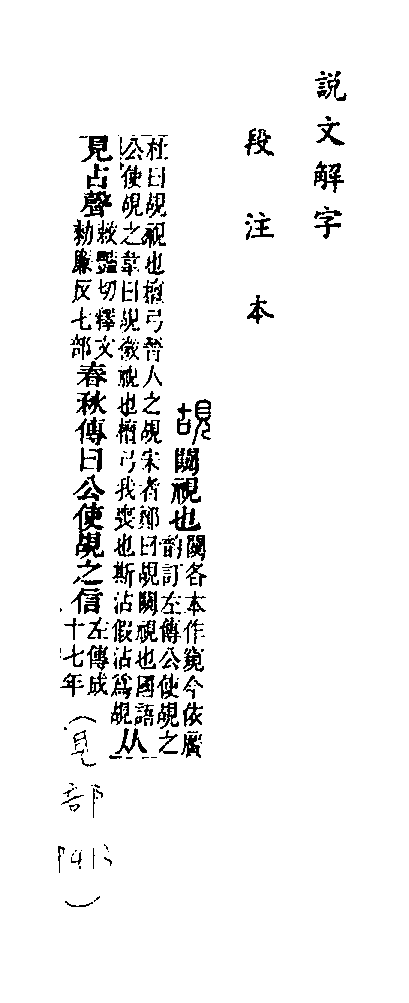 說文解字
段注本
覘
闚視也
闚各本作窺今依廣
韵訂左傳公使覘之
杜曰覘視也檀弓晉人之覘宋者鄭曰覘闚視也國語
公使覘之韋曰覘微視也檀弓我喪也斯沾假沾爲覘
从
見占聲
敕豔切釋文
勑廉反七部
春秋傳曰公使覘之信
左傳成
十七年
(見部
P413)